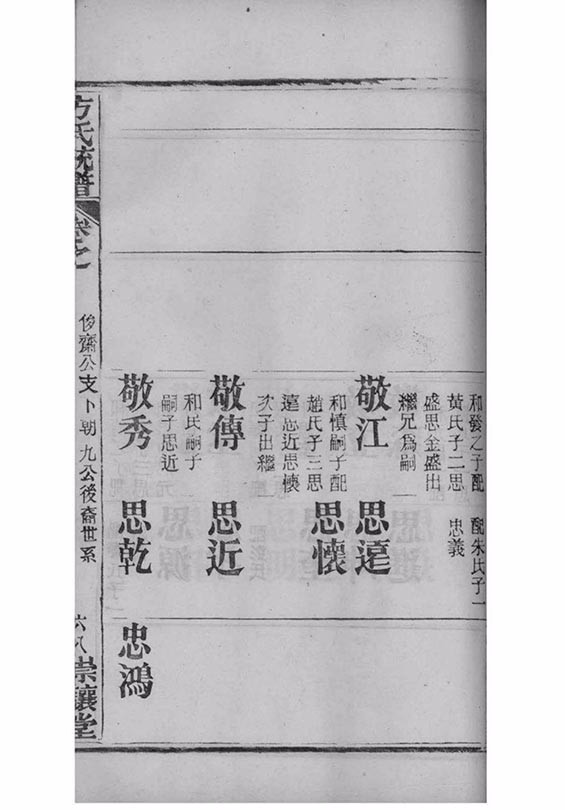 和發之子配
黃氏子二思
盛思金盛出
繼兄爲嗣
配朱氏子一
忠義
敬江
思蓬
和慎嗣子配
趙氏子三思
蓬思近思懷
次子出繼
思懷
敬傳
思近
和民嗣子
嗣子思近
敬秀
思乾
忠鴻
方氏統譜
卷之
俊齋公支卜朝九公後裔世系
六八
崇讓堂